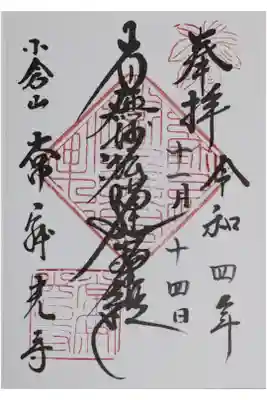 奉拝 令和四年
十一月十四日
南無妙法蓮華経
小倉山 常寂光寺